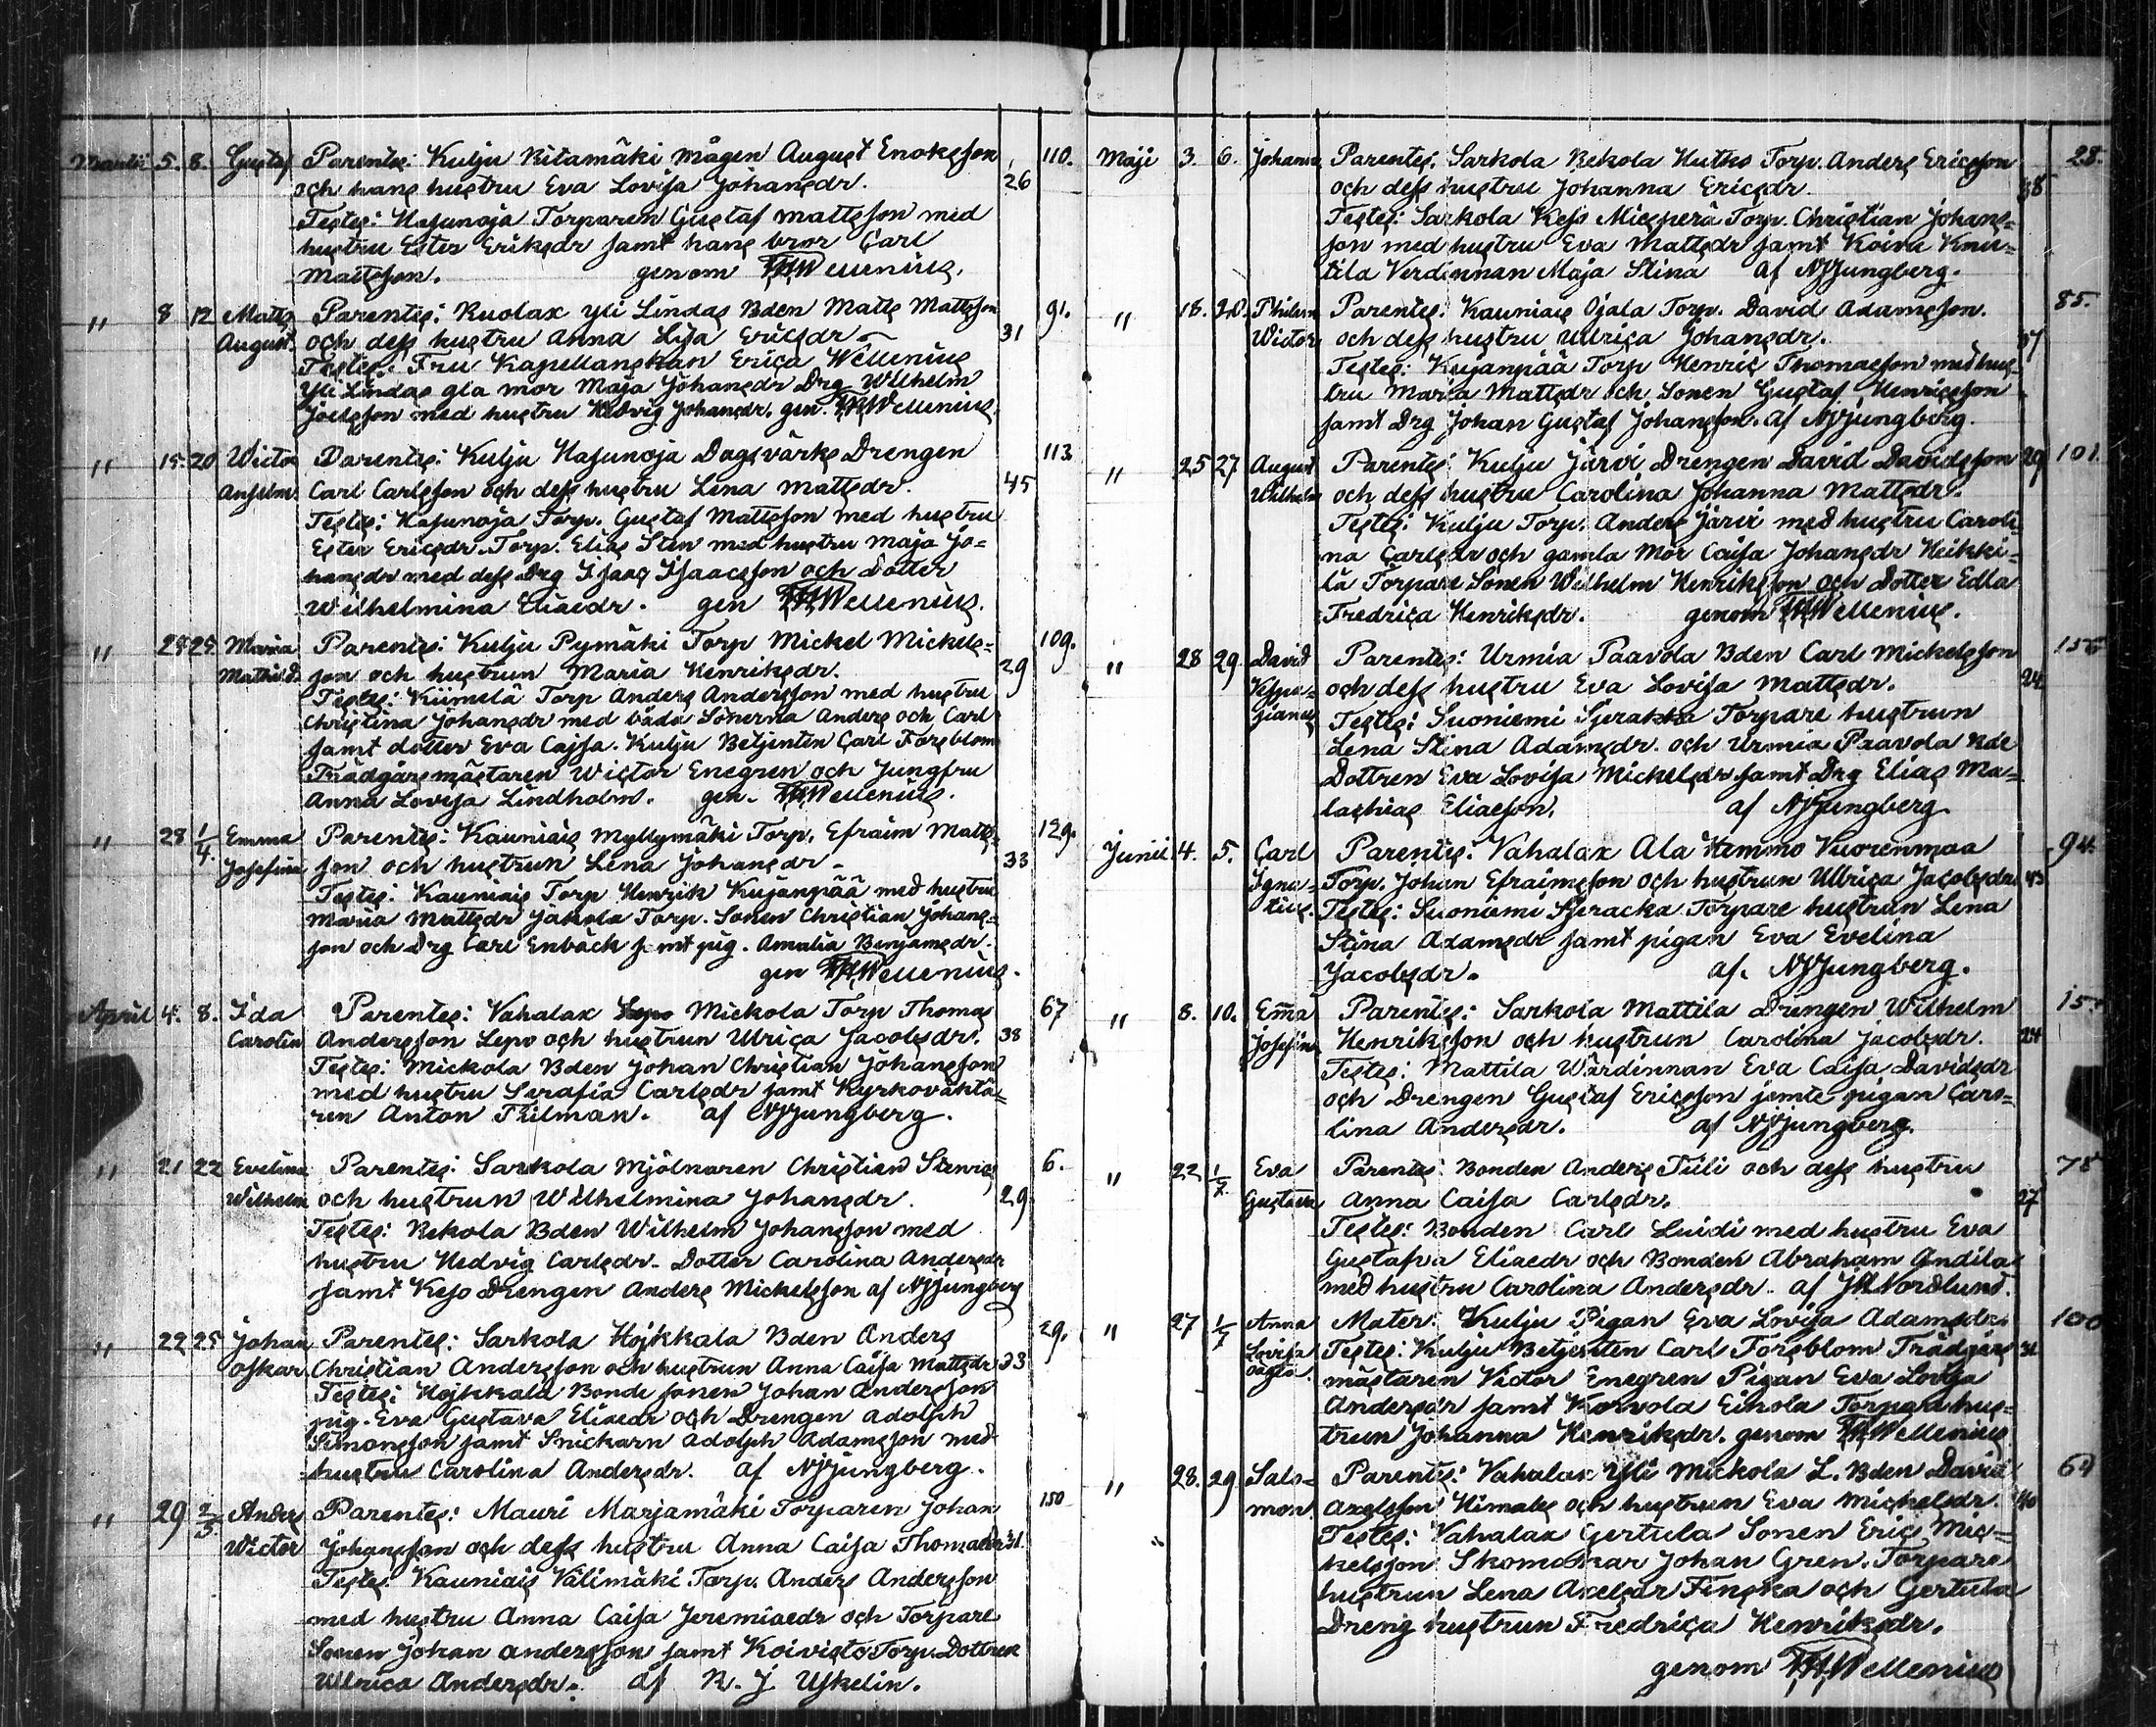 Martii 5. 8. Gustaf Parentes: Kulju Ritamäki mågen August Enoksson 110.
och hans hustru Eva Lovisa Johansdr. 26
Testes: Hasunoja Torparen Gustaf Mattsson med
hustru Ester Eriksdr samt hans bror Carl
Mattsson. genom Wellenius.
" 8 12 Matts Parentes: Kuolax Yli Lindas Bden Matts Mattsson 91.
August och dess hustru Anna Lisa Ericsdr 31
Testes: Fru Kapellanskan Erica Wellenius
Yli Lindas gla mor Maja Johansdr Drg Wilhelm
Joelsson med hustru Hedvig Johansdr. gen. Wellenius.
" 15 20 Victor Parentes: Kulju Hasunoja Dagsvärks Drengen 113
Anselm Carl Carlsson och dess hustru Lena Mattsdr. 45
Testes: Hasunoja Torp. Gustaf Mattsson med hustru
Ester Ericsdr. Torp. Elias Sten med hustru Maja Jo=
hansdr med dess Drg Isaac Isaacsson och Dotter
Wilhelmina Eliaedr. gen Wellenius.
" 25 Maria Parentes: Kulju Pymäki Torp Mickel Mickels= 109.
Mathild son och hustrun Maria Henriksdr. 29
Testes: Kiimelä Torp Anders Andersson med hustru
Christina Johansdr med båda Sönerna Anders och Carl
samt dotter Eva Cajsa. Kulju Betjenten Carl Forsblom
Trädgårsmästaren Wictor Enegren och Jungfru
Anna Lovisa Lindholm. gen. Wellenius.
" 28 1/4 Emma Parentes: Kauniais Myllymäki Torp. Efraim Matts= 129.
Josefina son och hustrun Lena Johansdr 33
Testes: Kauniais Torp Henrik Kujanpää med hustru
Maria Mattsdr Jakola Torp. Sonen Christian Johans=
son och Drg Carl Enbäck samt pig. Amalia Benjamsdr.
gen Wellenius.
April 4. 8. Ida Parentes: Vahalax Mickola Torp Thomas 67
Carolin Andersson Lepo och hustrun Ulrica Jacobsdr. 38
Testes: Mickola Bden Johan Christian Johansson
med hustru Serafia Carlsdr samt Kyrkoväktä=
ren Anton Thilman. af NJjungberg.
" 21 22 Evelina Parentes: Sarkola Mjölnaren Christian Stenros 6.
Wilhelm och hustrun Wilhelmina Johansdr. 29
Testes: Rekola Bden Wilhelm Johansson med
hustru Hedvig Carlsdr. Dotter Carolina Andersdr
samt Keso Drengen Anders Mickelsson af NJjungberg
" 22 25 Johan Parentes: Sarkola Hojkkala Bden Anders 29.
Oskar Christian Andersson och hustrun Anna Caisa Mattsdr 33
Testes: Hojkkala Bonde sonen Johan Andersson
pig. Eva Gustava Eliaedr och Drengen Adolph
Simonsson samt Snickarn Adolph Adamsson med
hustru Carolina Andersdr. af NJjungberg.
" 29 2/5 Anders Parentes: Mauri Marjamäki Torparen Johan 150
Victor Johansson och dess hustru Anna Caisa Thomaedr 31.
Testes: Kauniais Välimäki Torp. Anders Andersson
med hustru Anna Caisa Jeremiaedr och Torpare
Sonen Johan Andersson samt Koivisto Torp. Dottren
Ulrica Andersdr. af R. J. Uskelin.
Maji 3. 6. Johann Parentes: Sarkola Rekola Hutko Torp. Anders Ericsson 28.
och dess hustru Johanna Ericsdr. 38
Testes: Sarkola Keso Miesperä Torp. Christian Johans=
son med hustru Eva Mattsdr samt Koivu Knu=
tila Verdinnan Maja Stina af NJjungberg.
" 18. 20. Parentes: Kauniais Ojala Torp. David Adamsson. 85.
Wictor och dess hustru Ulrica Johansdr. 37
Testes: Kujanpää Torp Henric Thomaesson med hus=
tru Maria Mattsdr och Sonen Gustaf Henricsson
samt Drg Johan Gustaf Johansson. af NJjungberg.
" 25 27 August Parentes: Kulju Järvi Drengen David Davidsson 29 101
Wilhelm och dess hustru Carolina Johanna Mattsdr.
Testes: Kulju Torp. Anders Järvi med hustru Caroli=
na Carlsdr och gamla Mor Caisa Johansdr Heikki=
lä Torpare Sonen Wilhelm Henriksson och Dotter Edla
Fredrica Henriksdr. genom Wellenius.
" 28 29 David Parentes: Urmia Paavola Bden Carl Mickelsson
Vespa= och dess hustru Eva Lovisa Mattsdr. 24
sianus Testes: Suoniemi Sjerakka Torpare hustrun
Lena Stina Adamsdr. och Urmia Paavola Bde
Dottren Eva Lovisa Mickelsdr samt Drg Elias Ma=
lachias Eliaeson. af NJjungberg
Junii 4. 5. Carl Parentes: Vahalax Ala Hemmo Vuorenmaa 94.
Igna= Torp. Johan Efraimsson och hustrun Ullrica Jacobsdr 43
tius. Testes: Suoniemi Sjeracka Torpare hustrun Lena
Stina Adamsdr samt pigan Eva Evelina
Jacobsdr. af. NJjungberg.
" 8. 10. Emma Parentes: Sarkola Mattila Drengen Wilhelm
Josefina Henriksson och hustrun Carolina Jacobsdr. 24
Testes: Mattila Wärdinnan Eva Caisa Davidsdr
och Drengen Gustaf Ericsson jemte pigan Caro=
lina Andersdr. af NJjungberg.
" 22 1/7. Eva Parentes: Bonden Anders Tiili och dess hustru
Gustava Anna Caisa Carlsdr. 27
Testes: Bonden Carl Luidi med hustru Eva
Gustafva Eliaedr och Bonden Abraham Andila
med hustru Carolina Andersdr. af Nordlund.
" 27 1/7 Anna Mater: Kulju Pigan Eva Lovisa Adamsdr 100
Lovisa Testes: Kulju Betjenten Carl Forsblom Trädgårs
oägta. mästaren Victor Enegren Pigan Eva Lovisa
Andersdr samt Korvola Eihola Torpare hus=
trun Johanna Henriksdr. genom Wellenius
" 28. 29. Salo= Parentes: Vahalax Yli Mickola L. Bden David
mon Axelsson Himaks och hustrun Eva Michelsdr. 40
Testes: Vahalax Gertula Sonen Eric Mic=
kelsson Skomakar Johan Gren. Torpare
hustrun Lena Axelsdr Finska och Gertula
Dreng hustrun Fredrica Henriksdr.
genom Wellenius